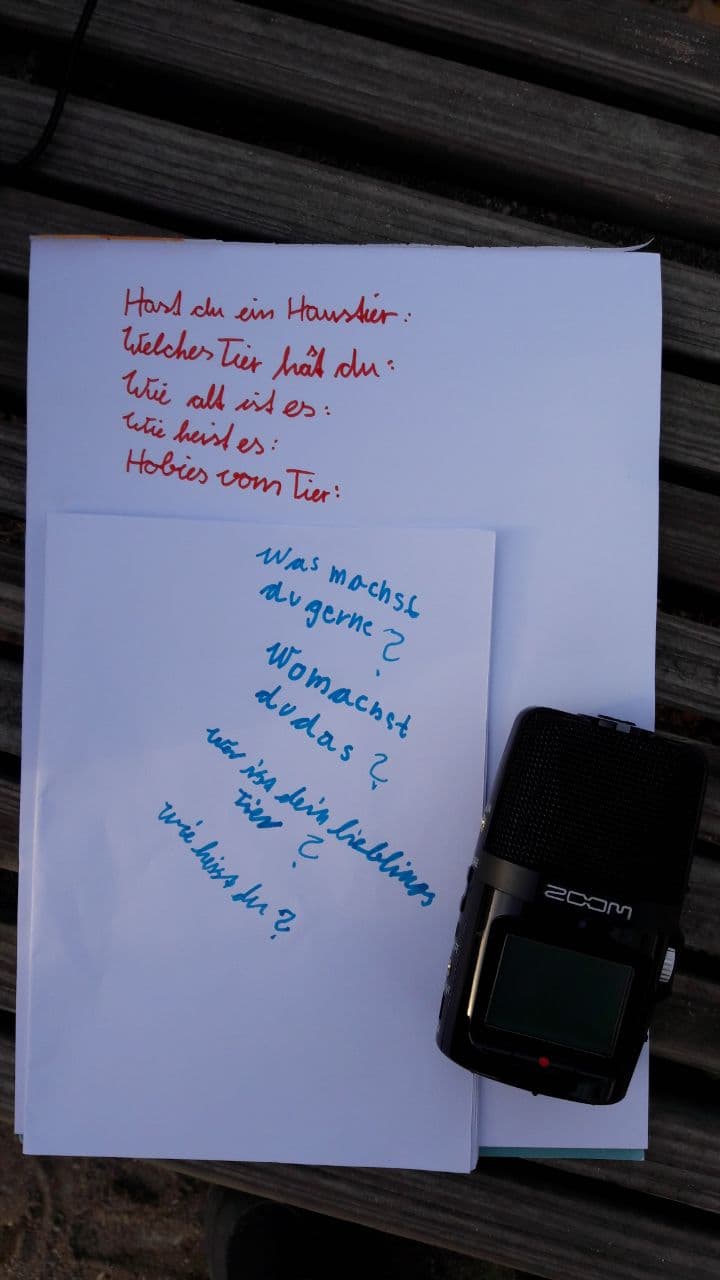 Hast du ein Haustier:
Welches Tier hat du:
Wie alt ist es:
Wie heist es:
Hobies vom Tier:
Was machst
du gerne?
Womachst
dudas?
War ist dein lieblings
Tier?
wie hisst du?
ZOOM